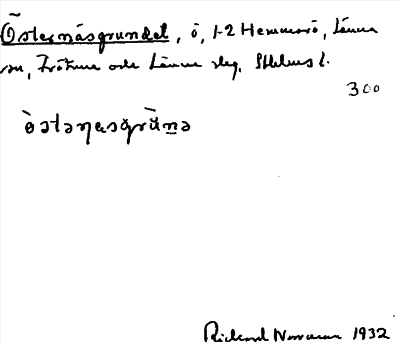 Östernäsgrundet, ö, 1-2 Hemmarö, Länna
sn, Frötuna och Länna slg, Sthlms l.
300
òstəṇasgrùnə
Rickard Norrman 1932